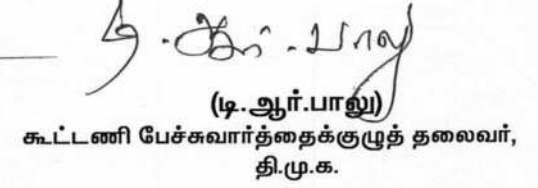 டி.ஆர்.பாலு
(டி.ஆர்.பாலு)
கூட்டணி பேச்சுவார்த்தைக்குழுத் தலைவர்,
தி.மு.க.